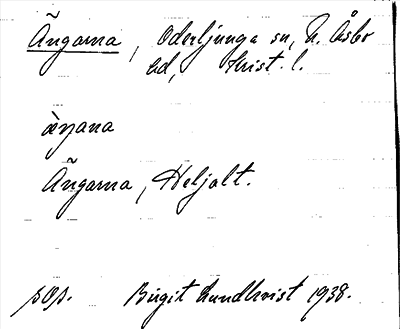 Ängarna, Oderljunga sn, N. Åsbo
hd, Krist. l.
æ̀ŋana
Ängarna, Heljalt.
sOs.
Birgit Lundkvist 1938.